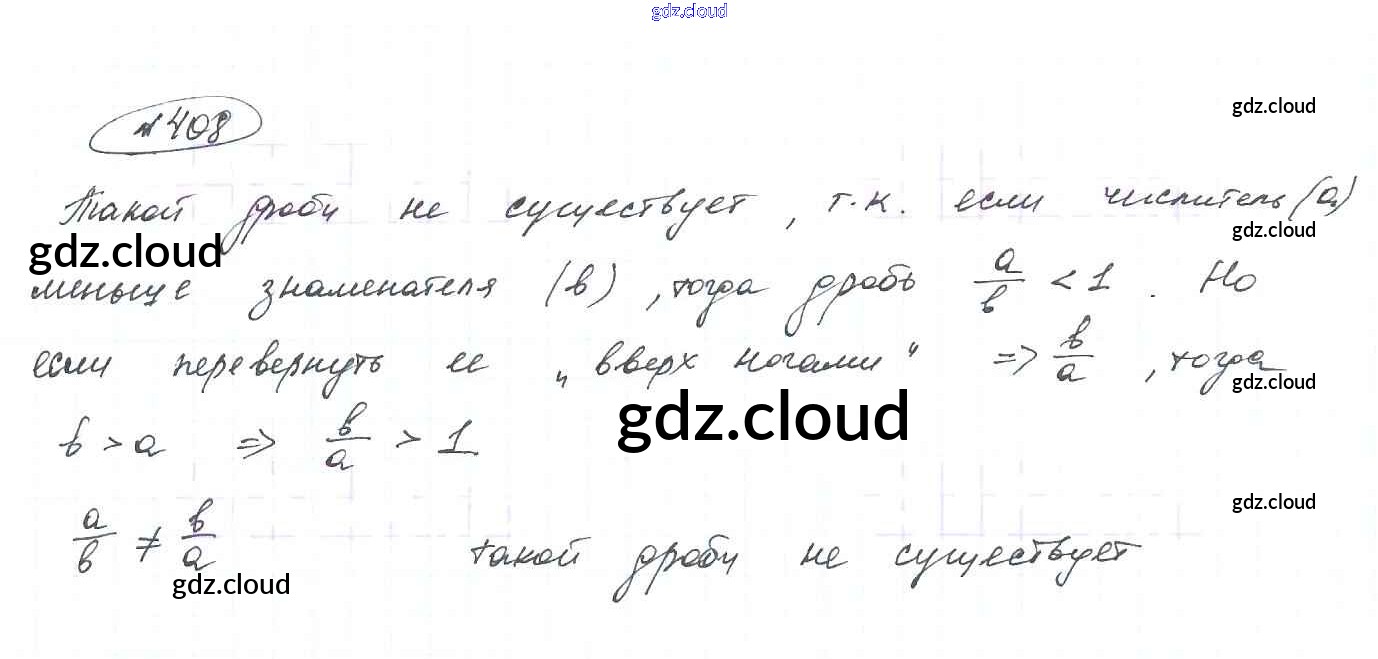 gdz.cloud
№408
gdz.cloud
Такой дроби не существует, т.к. если числитель (а)
gdz.cloud
gdz.cloud
меньше знаменателя (в), тогда дробь а/в < 1. Но
если перевернуть ее „вверх ногами“ => в/а, тогда
gdz.cloud
gdz.cloud
в > а => в/а > 1
gdz.cloud
а/в ≠ в/а такой дроби не существует
gdz.cloud